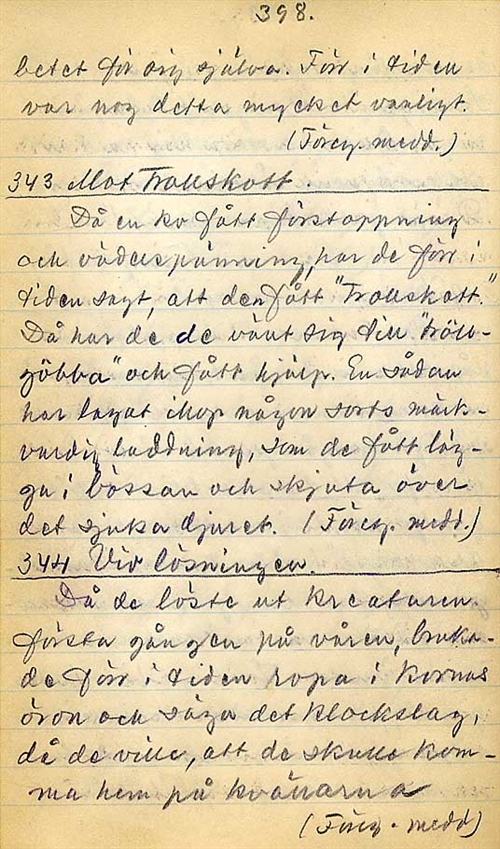 398.
betet för sig själva. Förr i tiden
var nog detta mycket vanligt.
(Föreg. medd.)
343 Mot Trollskott.
Då en ko fått förstoppning
och väderspänning, har de förr i
tiden sagt, att den fått "Trollskott."
Då har de de vänt sig till "Tröll-
göbba" och fått hjälp. En sådan
har lagat ihop någon sorts märk-
värdig laddning, som de fått läg-
ga i bössan och skjuta över
det sjuka djuret. (Föreg. medd.)
344 Vid lösningen.
Då de löste ut kreaturen
första gången på våren, bruka-
de förr i tiden ropa i kornas
öron och säga det klockslag,
då de ville, att de skulle kom-
ma hem på kvällarna
(Föreg. medd)